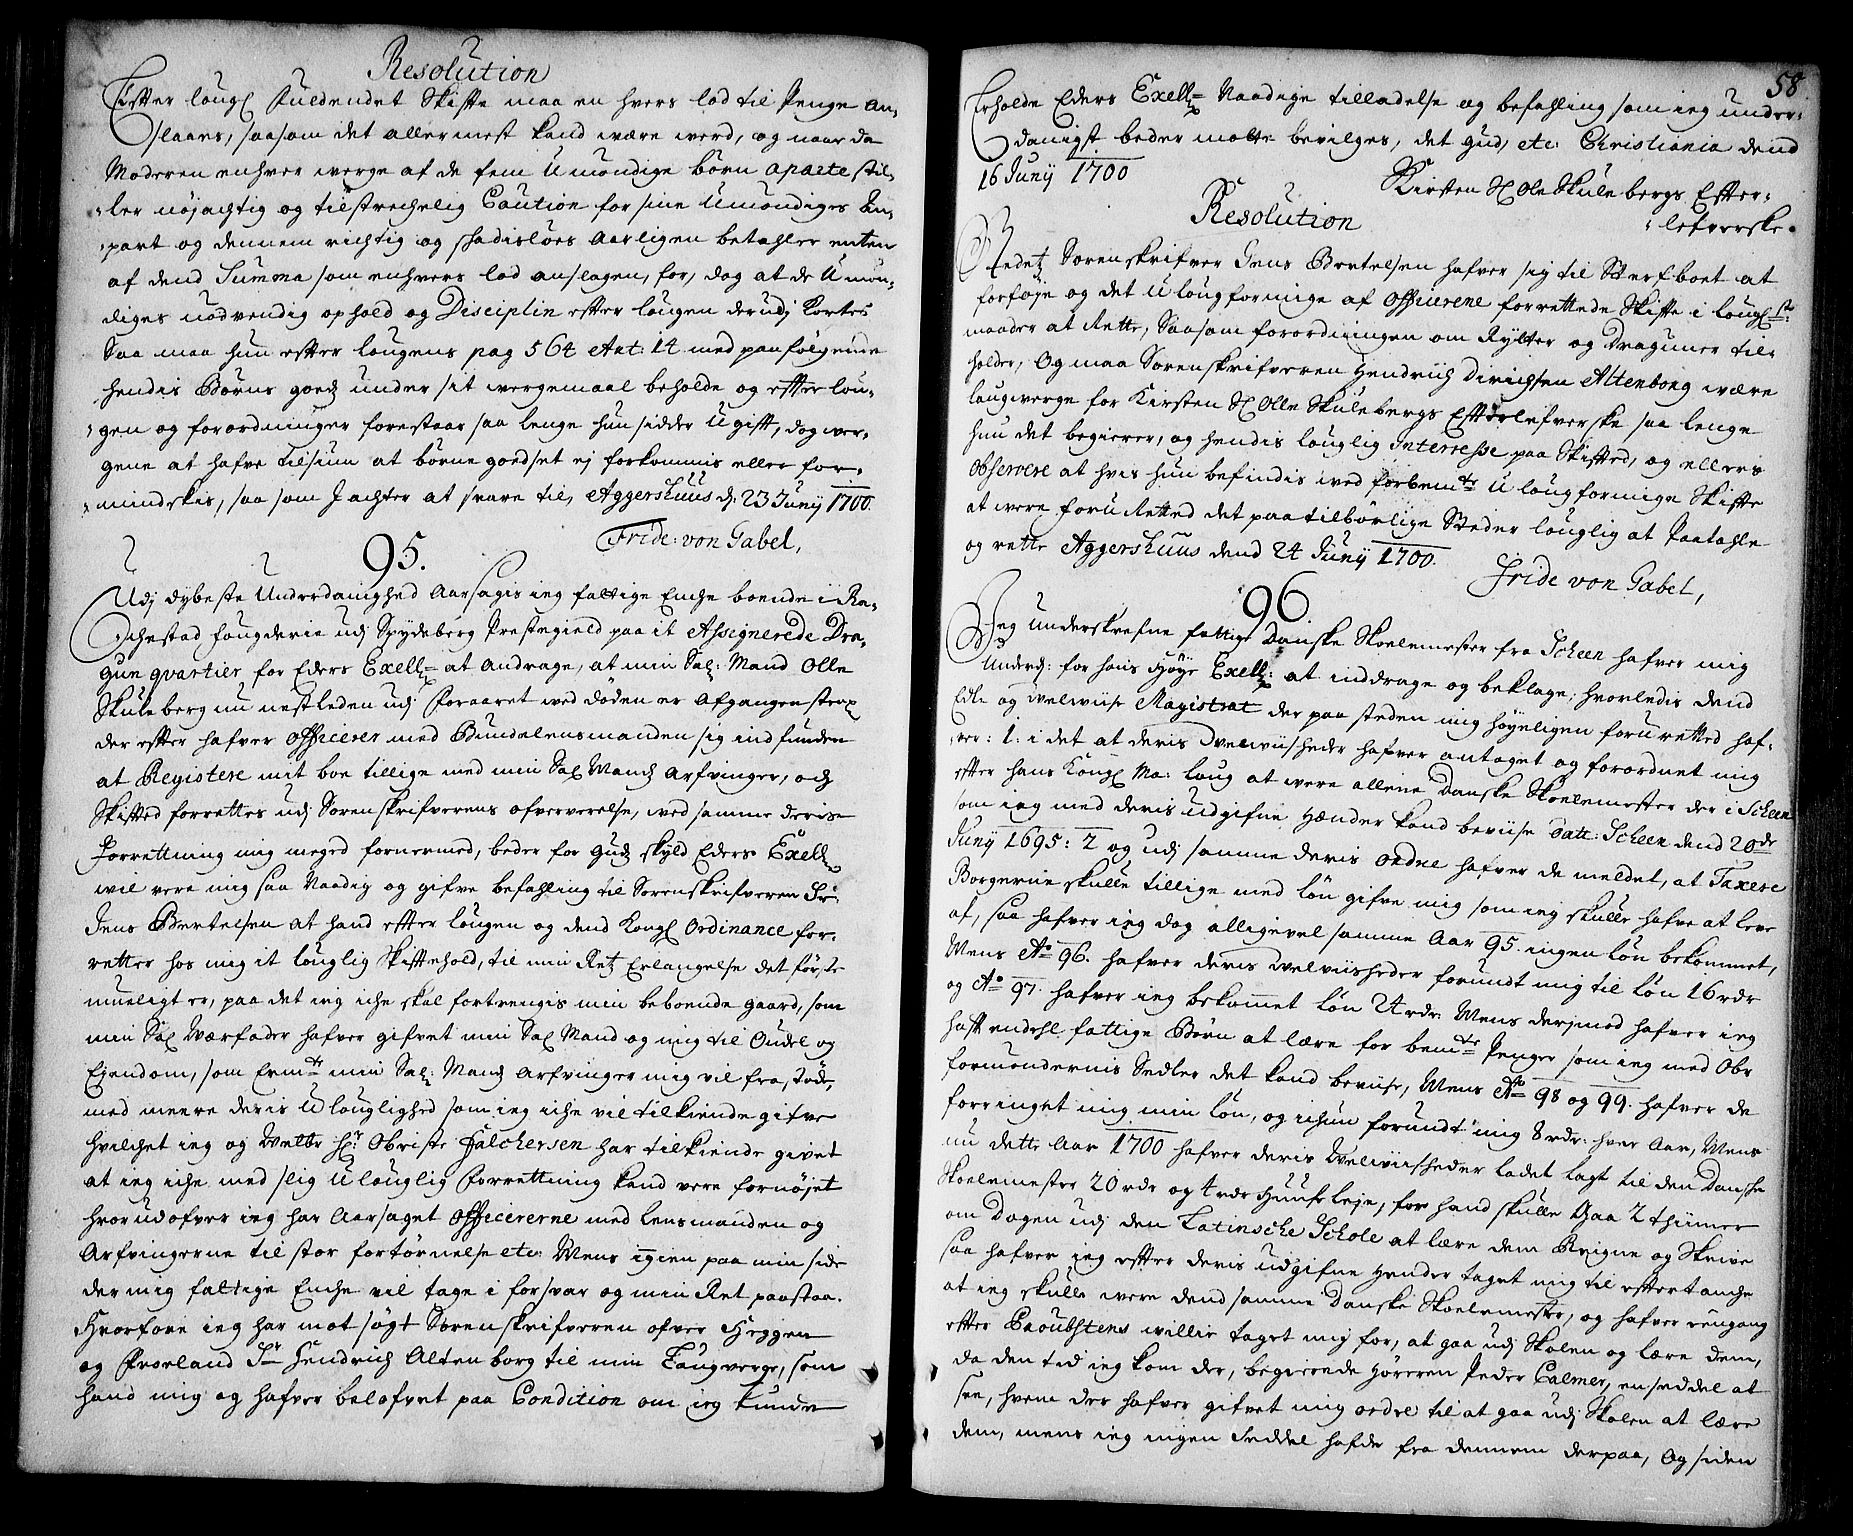 Resolution
Effter lougl fuldendet Skiffte maa en hvers lod til Penge an-
slaaes, saasom det allermest kand være werd, og naar da
Moderen enhver werge af de fem Umöndige börn aparte stil-
ler nöjachtig og tilstrechelig Caution for sine Umöndiges An-
part og dennem richtig og skadislöes Aarligen betahler renten
af dend Summa som enhvers lod anslagen, for, dog at de Umön-
diges nödvendig ophold og Disciplin effter lougen derudj Kortes
Saa maa hun effter lougens pag 564 Art: 14 med paafölgende
hendis Börns goedz under sit wergemaal beholde og effter lou-
gen og forordninger forestaae saa lenge hun sidder Ugift, dog wer-
gene at hafve tilsiun at börne goedset ej forkommis eller for-
mindskis, saa som I achter at svare til, Aggershuus d: 23 Junij 1700.
Fride: von Gabel,
95.
Udj dybeste Underdanighed Aarsagis ieg fattige Enche boende i Ra-
chestad fougderie udj Spydeberg Prestegield paa it Assignerede Dra-
gun qvartier for Eders Excell: at Andrage, at min Sal: Mand Olle
Skuleberg nu nestleden udj Foraaret wed döden er Afgangen strax
der effter hafver Officerer med Bundelensmanden sig indfunden
at Registere mit boe tillige med min Sal Mandz Arfvinger, och
Skifted forrettes udj Sorenskrifverens ofververelse, wed samme deris
Forrettning mig meged fornermed, beder for Gudz skyld Eders Excell
wil vere mig saa Naadig og gifve befahling til Sorenskrifveren Sr:
Jens Bertelsen at hand effter lougen og dend Kongl Ordinance for-
retter hos mig it louglig Skiftehold, til min Retz Erlangelse det förste
mueligt er, paa det ieg iche skal fortrengis min beboende gaard, som
min Sal Værfader hafver gifvet min Sal Mand og mig til Oudel og
Ejendom, som Ermte min Sal: Mandz Arfvinger mig vil fra, töde,
med meere deris Ulouglighed som ieg iche vil tilkiende gifve
hvilchet ieg og Velbr Hr: Obriste Falchersen har tilkiende givet
at ieg iche med slig Ulouglig Forrettning kand vere fornöjet
hvorudofver ieg har Aarsaget Officererne med lensmanden og
Arfvingerne til stor fortörnelse etc: Mens igien paa min side
der mig fattige Enche vil tage i forsvar og min Ret paastaa.
Hvorfore ieg har mot sögt Sorenskrifveren ofver Heggen
og Froeland Sr Hendrich Altenborg til min Laugverge, som
hand mig og hafver belofvet paa Condition om ieg kunde
58
Erholde Eders Excell: Naadige tilladelse og befahling som ieg under-
danigst beder motte bevilges, det Gud, etc: Christiania dend
16 Junij 1700
Kirsten Sl Ole Skulebergs Effter-
lefverske.
Resolution
Sorenskrifver Jens Bertelsen hafver sig til Sterfboet at
forföje og det Ulougformige af Officerene forrettede Skiffte i lougl:ste
maader at Rette, Saasom forordningen om Rytter og Draguner til-
holder, Og maa Sorenskrifveren Hendrich Dirichsen Altenborg wære
laugwerge for Kirsten Sl Olle Skulebergs Effterlefverske saa lenge
hun det begierer, og hendis louglig Interresse paa Skifted, og ellers
observere at hvis hun befindis ved forbemte Ulougformige Skiffte
at were foru Retted det paa tilbörlige Steder louglig at Paatahle
og rette Aggershuus dend 24 Junij 1700.
Fride von Gabel,
96
Jeg underskrefne fattige Danske Skolemester fra Scheen hafver mig
Underd: for hans Høye Excell: at inddrage og beklage; hvorledis dend
Edle og Velwiise Magistrat der paa steden mig höyeligen foruretted haf-
ver: 1: i det at deris Velwiisheder hafver antaget og forordnet mig
effter hans Kongl Ma: loug at were allene Danske Skolemester der i Scheen
som ieg med deris udgifne Hænder kand beviise Datt: Scheen dend 20de
Junij 1695: 2 og udj samme deris ordre hafver de meldet, at Taxere
Borgerne skulle tillige med lön gifve mig som ieg skulle hafve at leve
af, saa hafver ieg dog alligevel samme Aar 95. ingen lön bekommet,
Mens Ao 96. hafver deris Velwiisheder forundt mig til lön 16 rdr
og Ao 97. hafver ieg bekommet lön 24 rdr: Mens derjmod hafver ieg
hafft endehl fattige Börn at lære for bemte Penger som ieg med Obr
formöndernis Sedler det kand beviise, Mens Ao 98 og 99. hafver de
forringet mig min lön, og ichun forundt mig 8 rdr: hver Aar, Mens
nu dette Aar 1700 hafver deris Velwiisheder ladet lagt til den Danske
Skoelemester 20 rdr og 4 rdr Huusleje, for hand skulle Gaa 2 thiimer
om Dagen udj den Latinsche Schole at lære dem Reigne og Skrive
saa hafver ieg effter deris udgifne Hender taget mig til effter tanche
at ieg skulle were dend samme Danske Skoelemester, og hafver eengang
effter willie taget mig for, at gaa udj Skolen og lære dem,
da den tid ieg kom der, begierede Höreren Peder Calmer, en seddel at
see, hvem der hafver gifvet mig ordre til at gaa udj Skolen at lære
dem, mens ieg ingen Seddel hafde fra dennem derpaa, Og siden